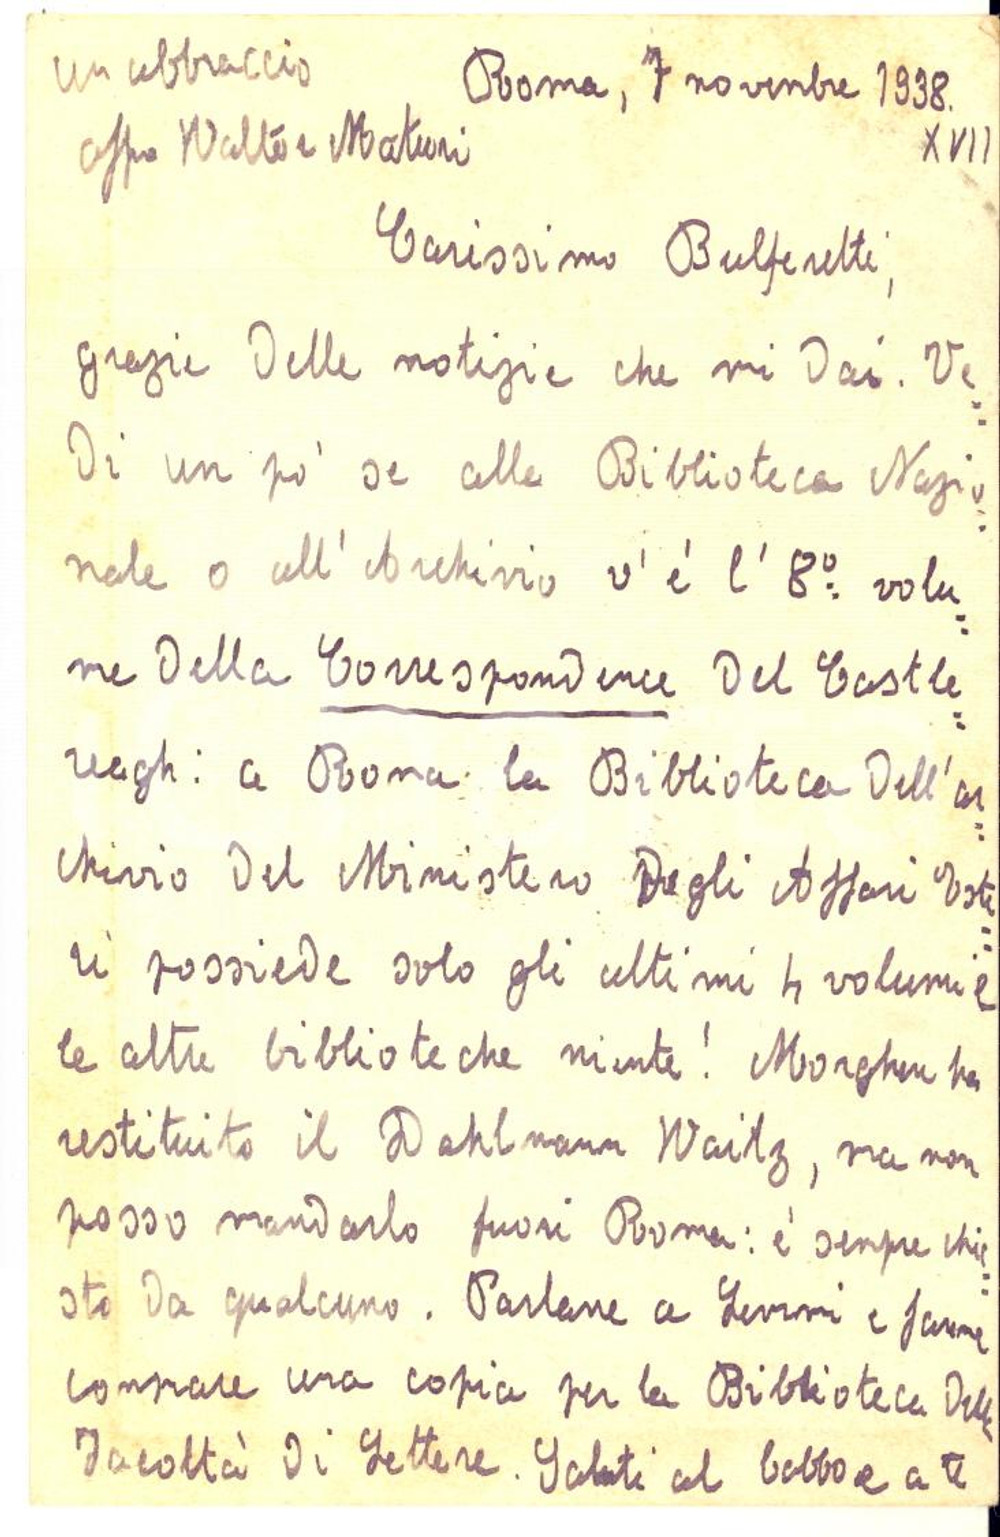 Roma, 7 novembre 1938.
XVII
Carissimo Bulferetti,
grazie delle notizie che mi dai. Ve=
di un pò se alla Biblioteca Nazio=
nale o all'Archivio v'è l'8º volu=
me della Correspondence del Castle=
reagh: a Roma la Biblioteca dell'ar=
chivio del Ministero degli Affari Este=
ri possiede solo gli ultimi 4 volumi e
le altre biblioteche niente! Morghen ha
restituito il Dahlmann Waitz, ma non
posso mandarlo fuori Roma: è sempre chie=
sto da qualcuno. Parlane a e fanne
comprare una copia per la Biblioteca della
Facoltà di Lettere. Saluti al babbo e a te
un abbraccio
affmo Walter Maturi